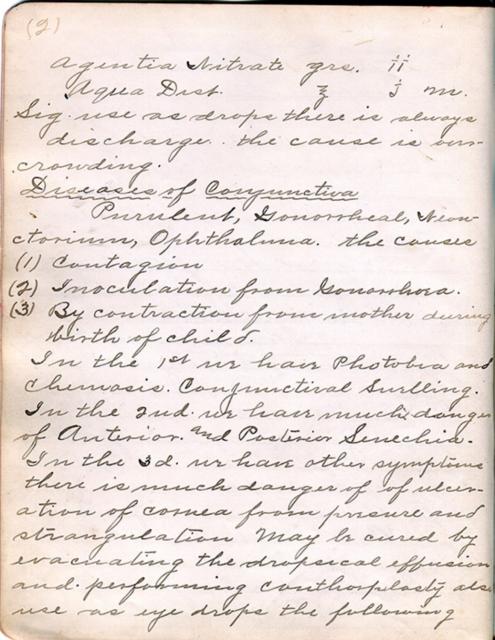 (2)
Agentia Nitrate grs. ii
Aqua Dist. ℥ i m.
Sig. use as drops there is always
discharge. the cause is over
crowding.
Diseases of Conjunctiva
Purulent, Gonorrheal, Neon-
ctorium, Ophthalma. the causes
(1) Contagion
(2) Inoculation from Gonorrhora.
(3) By contraction from mother during
birth of child.
In the 1st we have Photobia and
chemasis. Conjunctival Swelling.
In the 2nd. we have much danger
of Anterior and Posterior Senechia.
In the 3d. we have other symptoms
there is much danger of of ulcer-
ation of cornea from presure and
strangulation May be cured by
evacuating the dropsical effusion
and performing canthorplasty also
use as eye drops the following